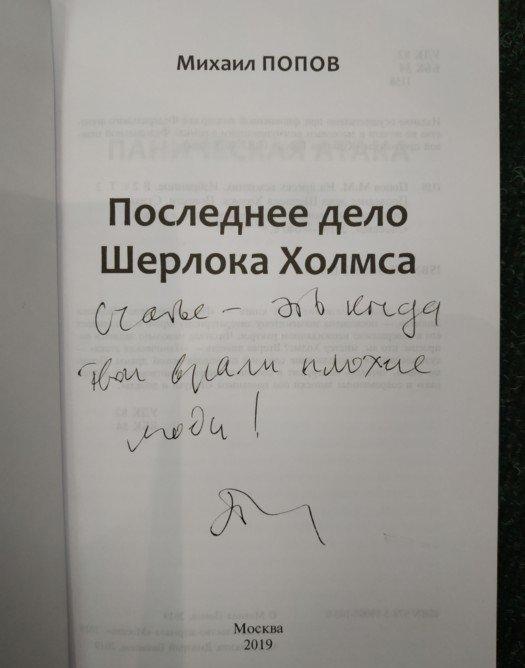 Михаил ПОПОВ
Последнее дело
Шерлока Холмса
Счастье – это когда
твои враги плохие
люди!
Москва
2019